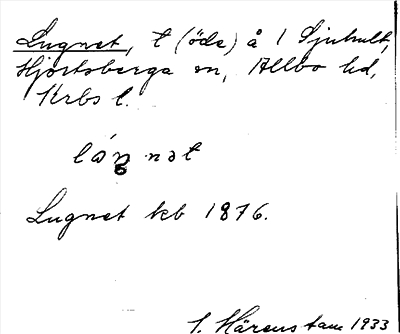 Lugnet, t (öde) å 1 Sjuhult,
Hjortsberga sn, Allbo hd,
Krbs l.
lóŋnət
Lugnet kb 1876.
I. Härenstam 1933